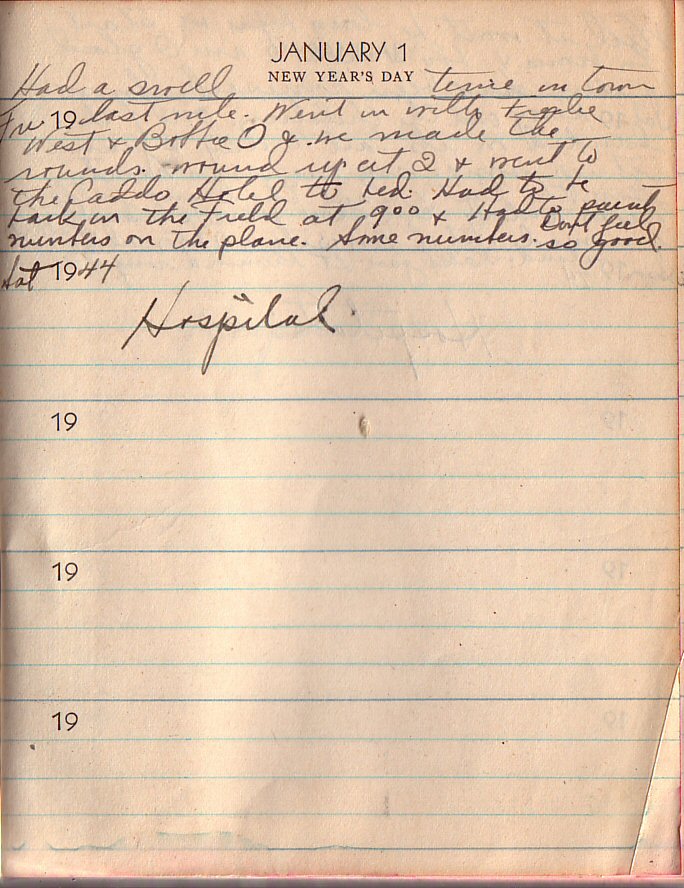 JANUARY 1
NEW YEAR'S DAY
Had a swell time in town
Fri 19 last nite. Went in with
West & Bottie O & we made the
rounds. wound up at 2 & went to
the Caddo Hotel to bed. Had to be
back in the field at 9 00 & Had to paint
numbers on the plane. Some numbers. Don't feel
so good.
Sat 1944
Hospital.
19
19
19